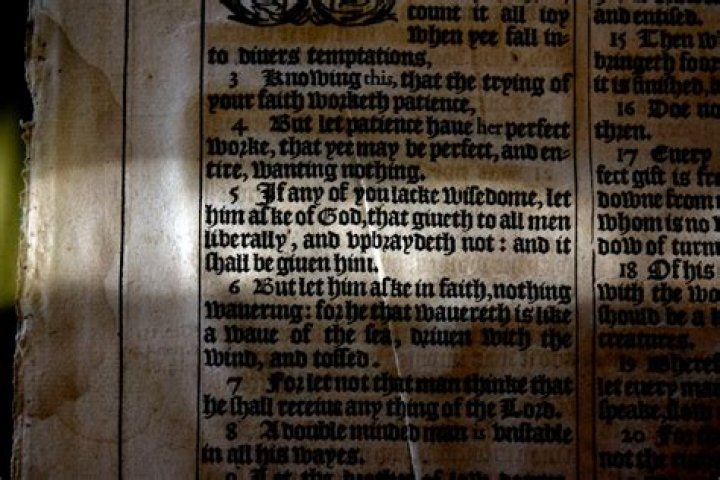 count it all ioy
when yee fall in-
to diuers temptations,
3 Knowing this, that the trying of
your faith worketh patience,
4 But let patience haue her perfect
worke, that yee may be perfect, and en-
tire, wanting nothing.
5 If any of you lacke wisedome, let
him aske of God, that giueth to all men
liberally, and vpbraydeth not: and it
shall be giuen him.
6 But let him aske in faith, nothing
wauering: for he that wauereth is like
a waue of the sea, driuen with the
wind, and tossed.
7 For let not that man thinke that
he shall receiue any thing of the Lord.
8 A double minded man is vnstable
in all his wayes.
9 Let the brother of low degree
and entised.
15 Then w
bringeth foor
it is finished, b
16 Doe no
thren.
17 Euery
fect gift is fro
downe from
whom is no v
dow of turn
18 Of his
with the wo
should be a k
creatures.
19 Wheref
let euery man
speake, slow
20 For th
not the